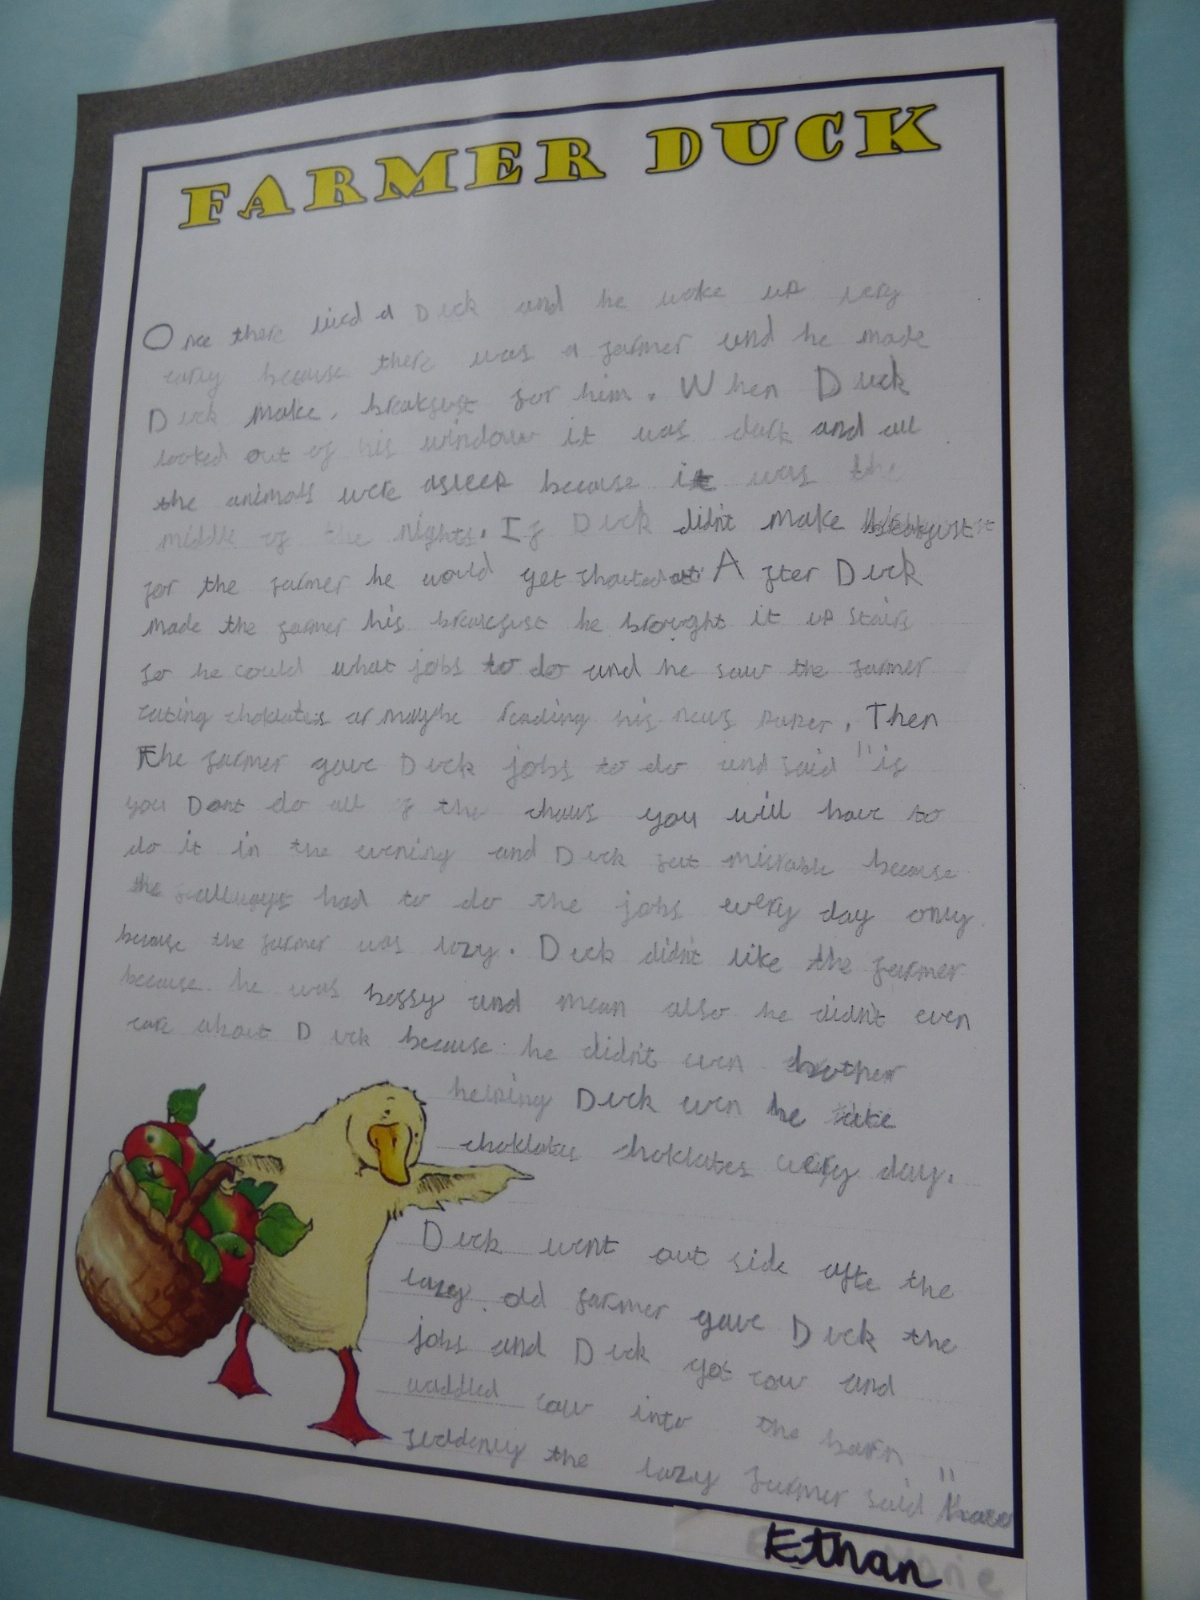 FARMER DUCK
Once there livd a Duck and he woke up very
early because there was a farmer and he made
Duck make. breakfast for him. When Duck
looked out of his window it was dark and all
the animals were asleep because it was the
middle of the nights. If Duck didn't make breakfast
for the farmer he would get shouted at. After Duck
made the farmer his breakfast he brought it up stairs
so he could what jobs to do and he saw the farmer
eating choklates or maybe reading his news paper. Then
The farmer gave Duck jobs to do and said "if
you Dont do all of the you will have to
do it in the evening and Duck felt misrable because
the allways had to do the jobs every day only
because the farmer was lazy. Duck didn't like the farmer
because he was bossy and mean also he didn't even
care about Duck because he didn't even bother
helping Duck even he
choklates choklates every day.
Duck went out side afte the
lazy old farmer gave Duck the
jobs and Duck got cow and
waddled cow into the barn
suddenly the lazy farmer said "how
Ethan